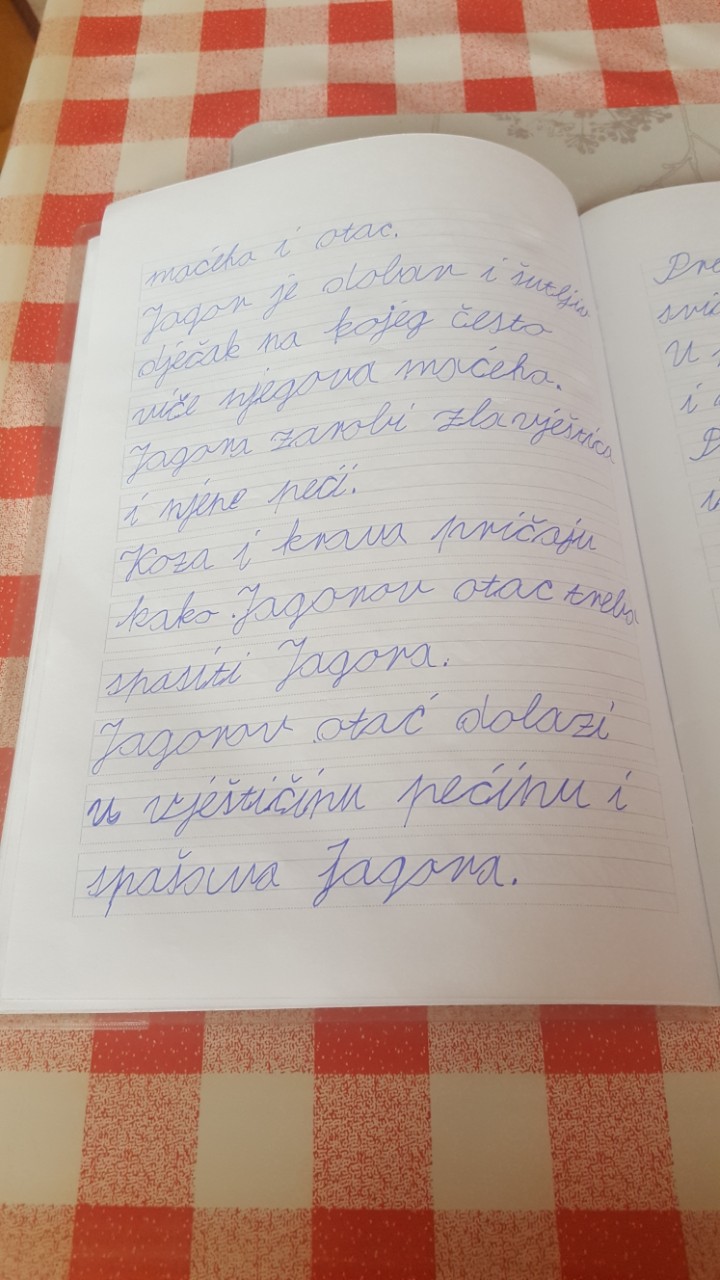 maćeha i otac.
Jagor je dobar i šutljiv
dječak na kojeg često
viče njegova maćeha.
Jagora zarobi zla vještica
i njene peći.
Koza i krava pričaju
kako Jagorov otac treba
spasiti Jagora.
Jagorov otać dolazi
u vještičinu pećinu i
spašava Jagora.
Pre
U
i